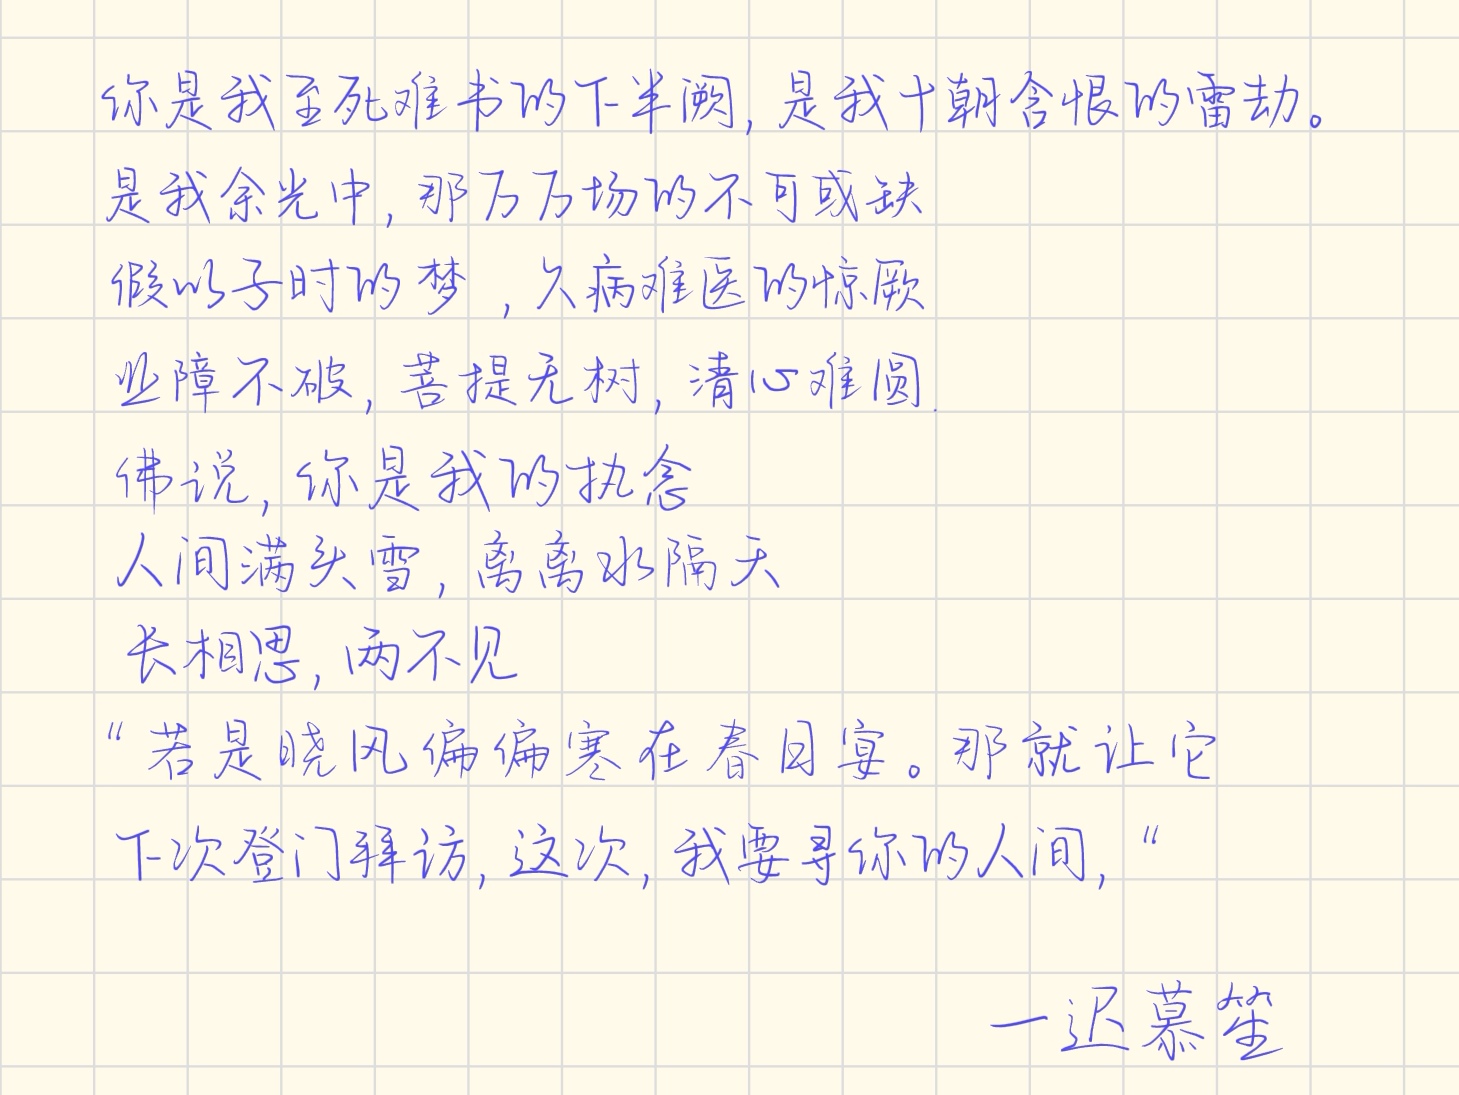 你是我至死难书的下半阙，是我十朝含恨的雷劫。
是我余光中，那万万场的不可或缺
假以子时的梦，久病难医的惊厥
业障不破，菩提无树，清心难圆.
佛说，你是我的执念
人间满头雪，离离水隔天
长相思，两不见
“若是晓风偏偏寒在春日宴。那就让它
下次登门拜访，这次，我要寻你的人间，“
一迟慕笙